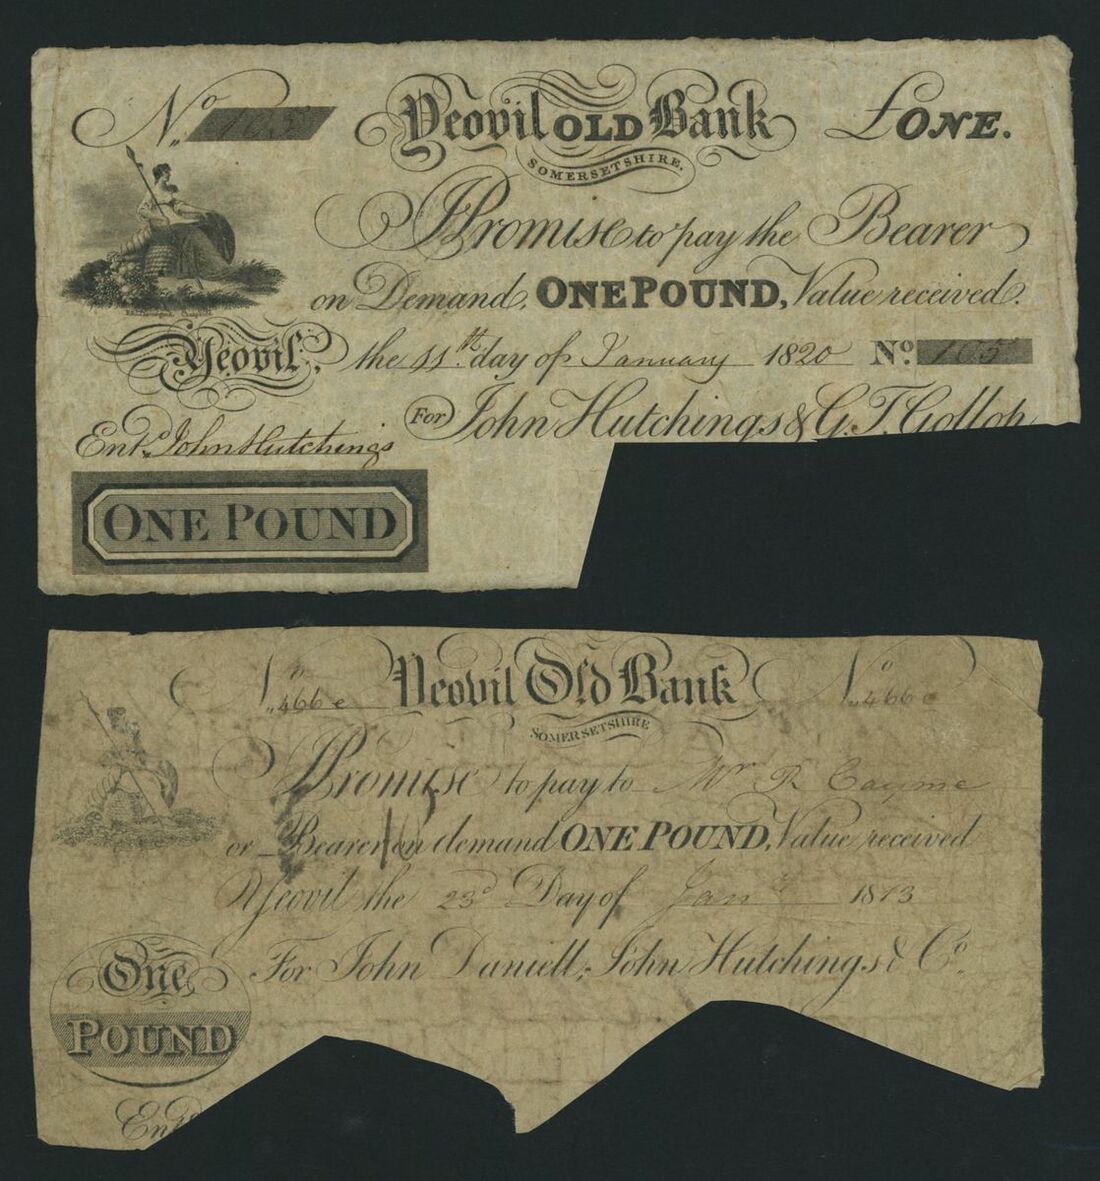 No. 105 Yeovil OLD Bank £ONE.
SOMERSETSHIRE.
I Promise to pay the Bearer
on Demand, ONE POUND, Value received.
Yeovil, the 11th day of January 1820 No 105
For John Hutchings & G. T. Gollop
Entd. John Hutchings
ONE POUND
No. 466 e Yeovil Old Bank No. 466 e
SOMERSETSHIRE
I Promise to pay to Mr R
or Bearer on demand ONE POUND, Value received
Yeovil the 23d Day of Jany 1813
For John Daniell, John Hutchings & Co.
One
POUND
Entd